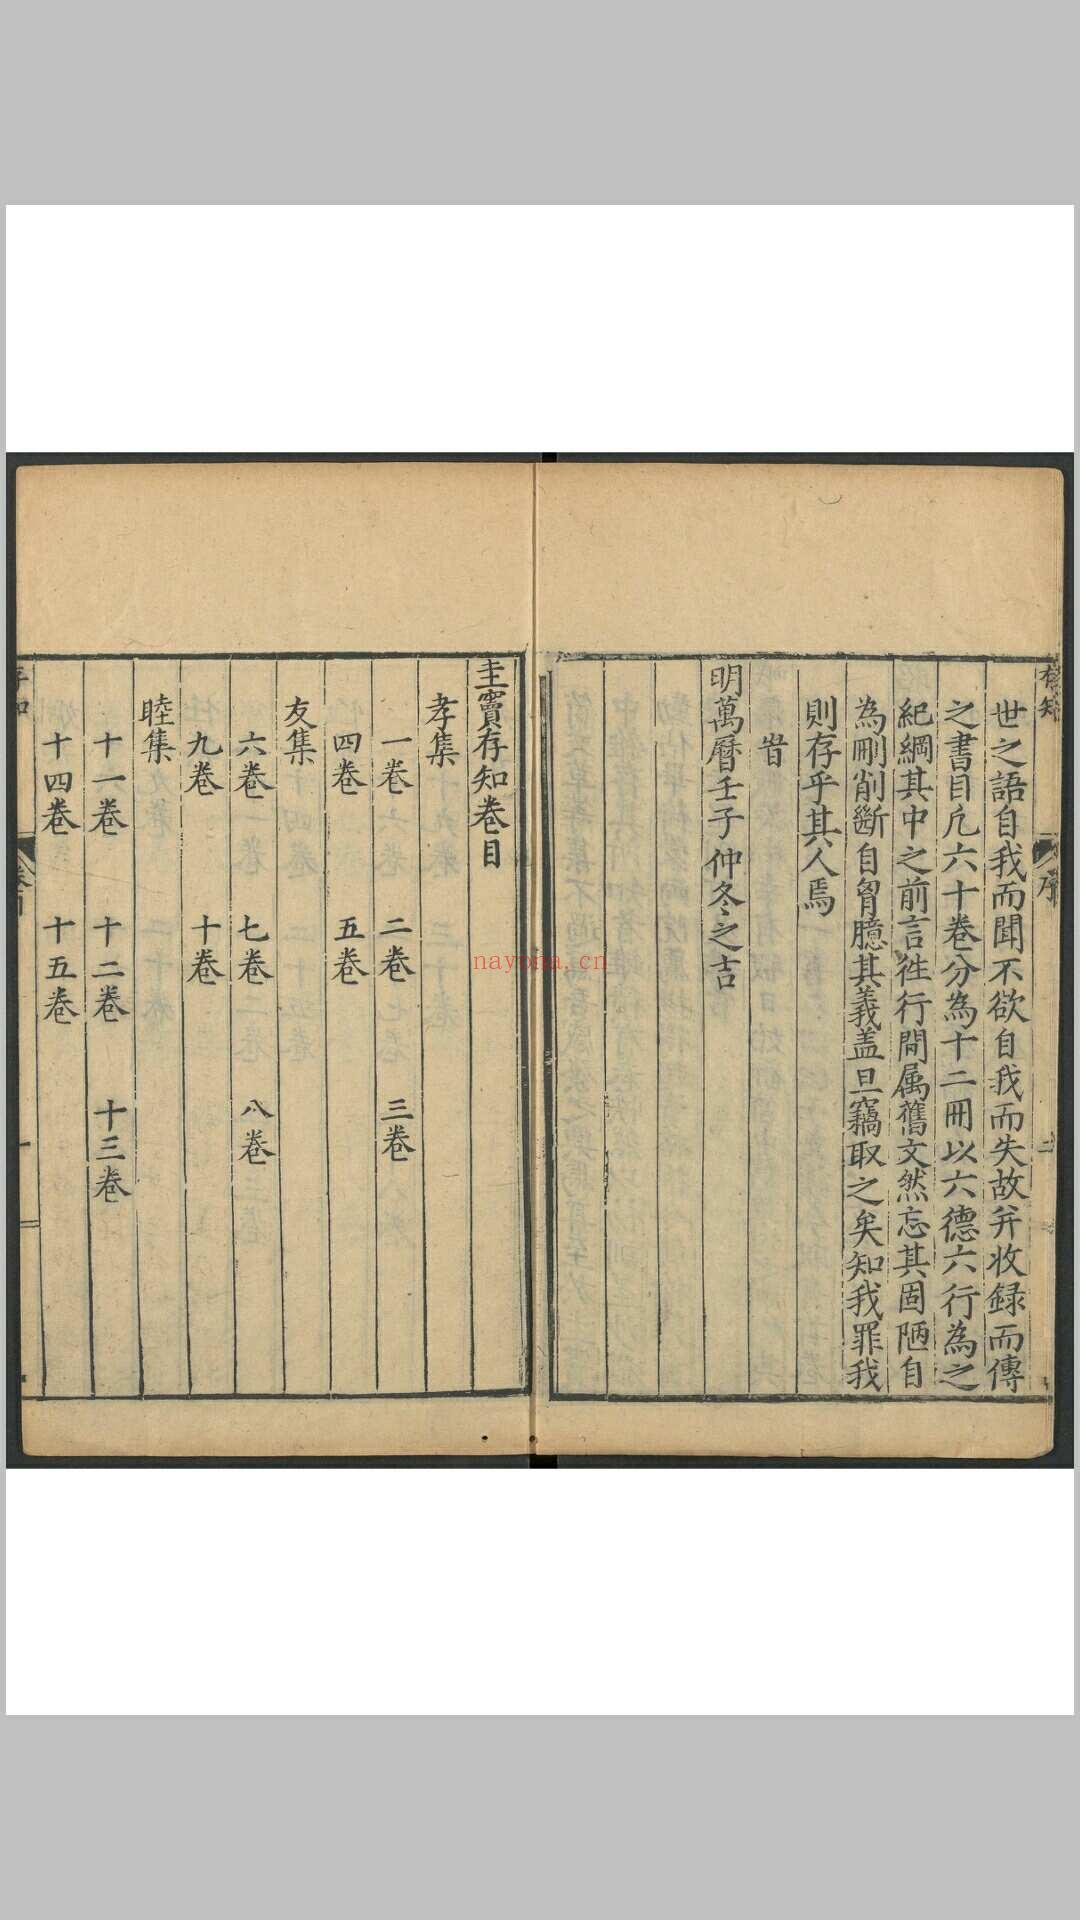 存知
序
世之語自我而聞不欲自我而失故并收録而傳
之書目凢六十卷分為十二冊以六德六行為之
紀綱其中之前言徃行間属舊文然忘其固陋自
為刪削斷自胷臆其義盖旦竊取之矣知我罪我
則存乎其人焉
旹
明萬曆壬子仲冬之吉
圭竇存知卷目
孝集
一卷 二卷 三卷
四卷 五卷
友集
六卷 七卷 八卷
九卷 十卷
睦集
十一卷 十二卷 十三卷
十四卷 十五卷
nayona.cn